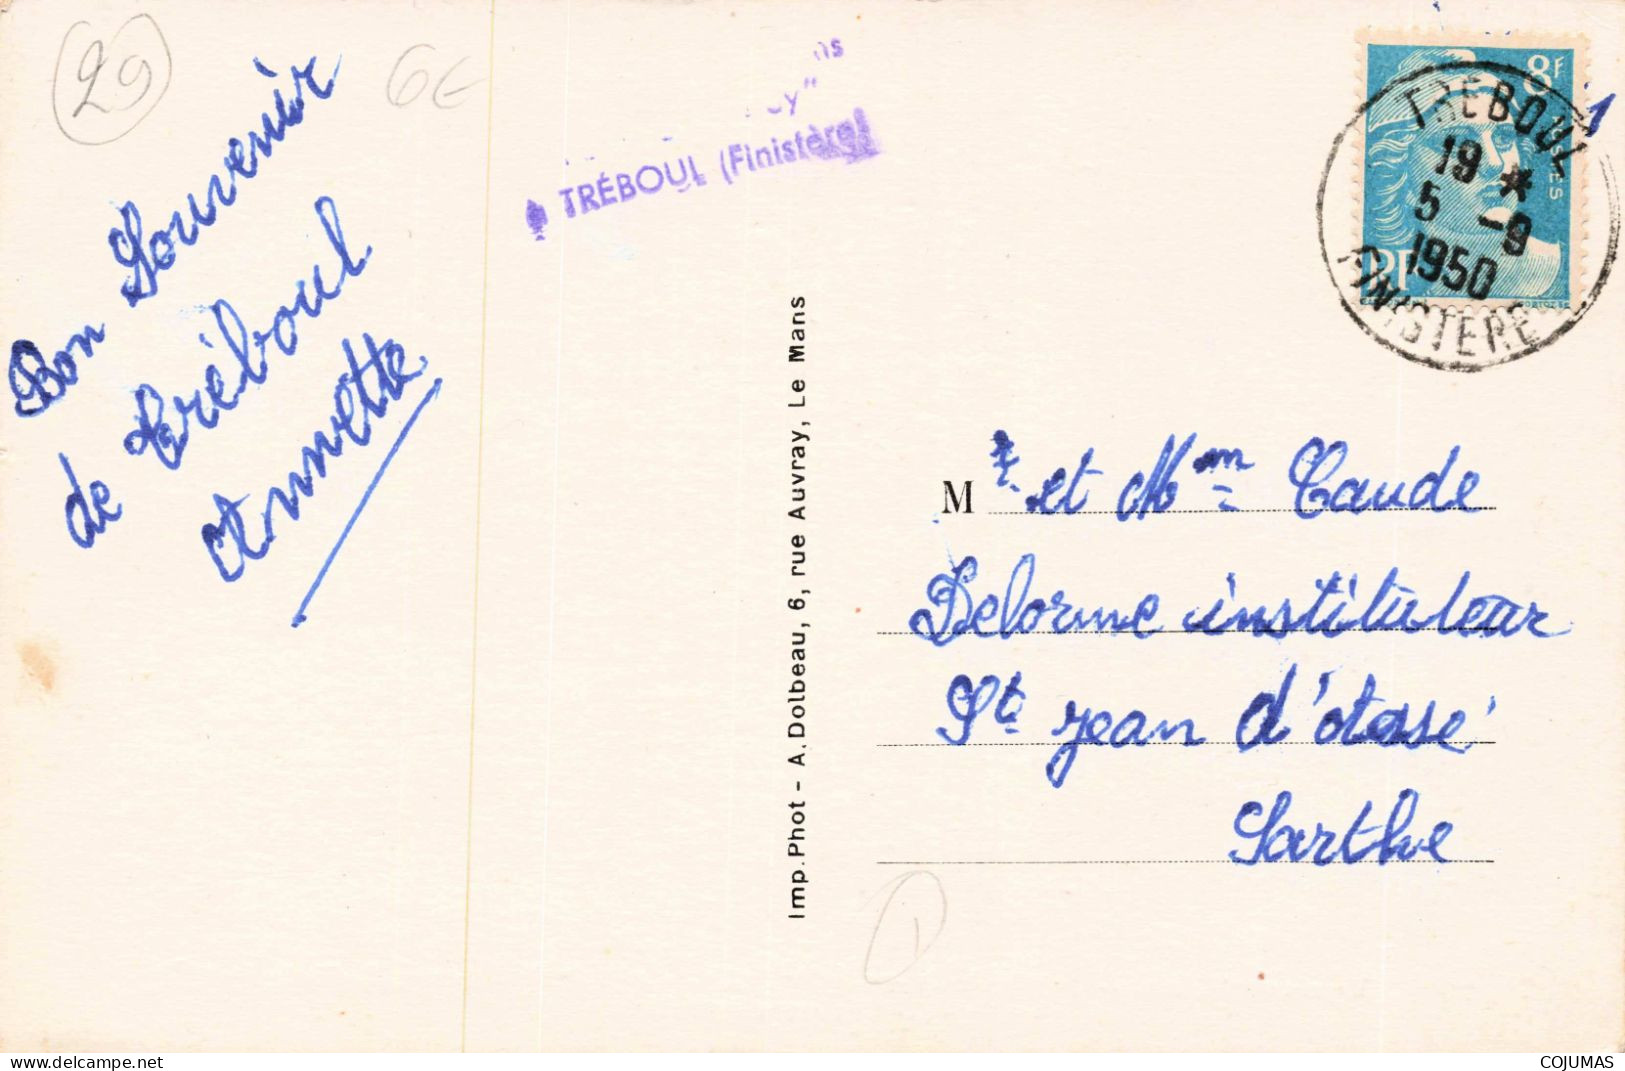 29
6€
Bon Souvenir
de Tréboul
Annette
TRÉBOUL (Finistère)
Imp. Phot - A. Dolbeau, 6, rue Auvray, Le Mans
8F
POSTES
RF
TREBOUL
19 *
5 -9
1950
FINISTERE
M r et Mme Caude
Delorme instituteur
St jean d'otassé
Sarthe
1
delcampe.net
COJUMAS